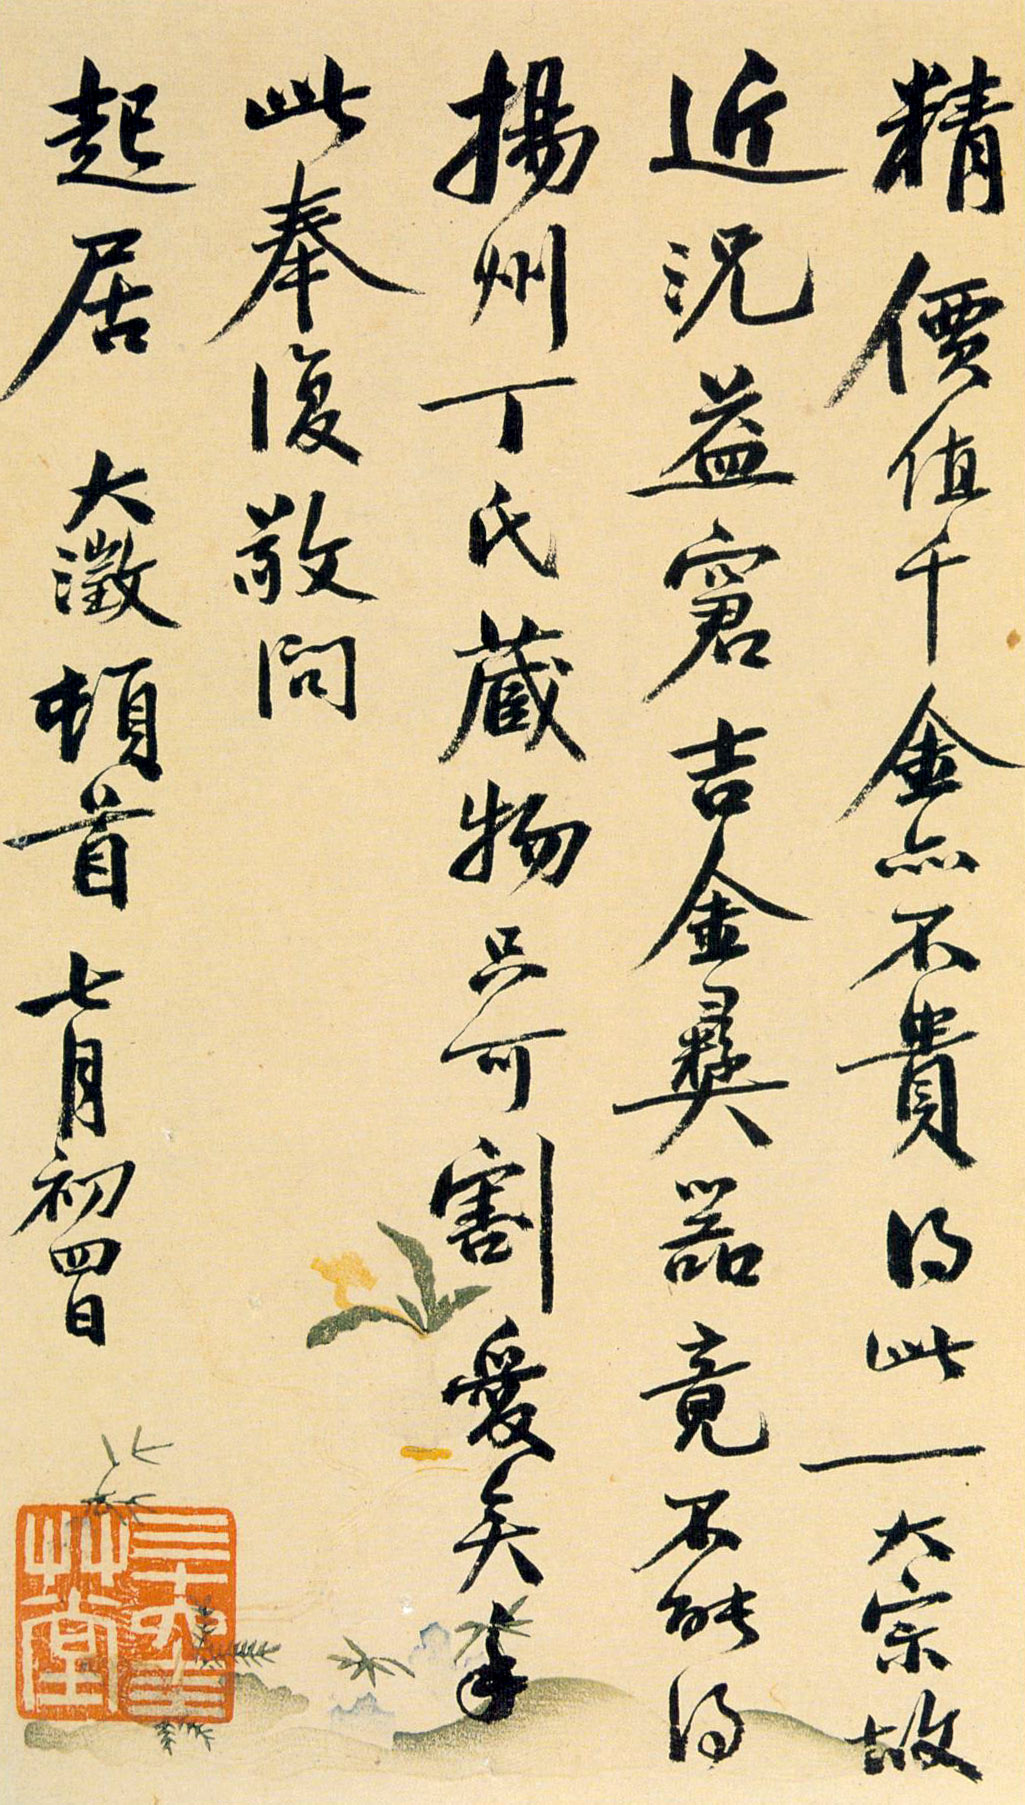 精價值千金亦不貴得此一大宗故
近況益窘吉金彝器竟不能得
揚州丁氏藏物只可割愛矣手
此奉復敬問
起居 大澂頓首 七月初四日